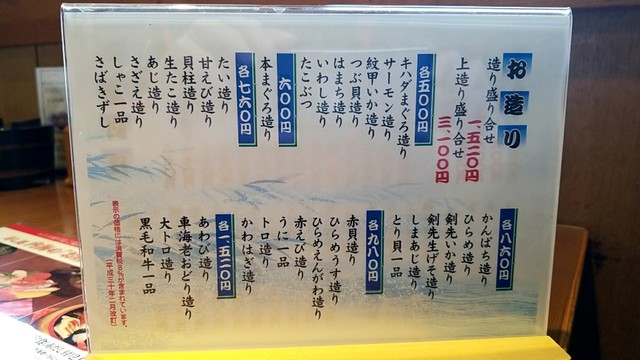 お造り
造り盛り合せ
一、五二〇円
上造り盛り合せ
三、一〇〇円
各五〇〇円
キハダまぐろ造り
サーモン造り
紋甲いか造り
つぶ貝造り
はまち造り
いわし造り
たこぶつ
六〇〇円
本まぐろ造り
各七六〇円
たい造り
甘えび造り
貝柱造り
生たこ造り
あじ造り
さざえ造り
しゃこ一品
さばきずし
各八六〇円
かんぱち造り
ひらめ造り
剣先いか造り
剣先生げそ造り
しまあじ造り
とり貝一品
各九八〇円
赤貝造り
ひらめうす造り
ひらめえんがわ造り
赤えび造り
うに一品
トロ造り
かわはぎ造り
各一、五二〇円
あわび造り
車海老おどり造り
大トロ造り
黒毛和牛一品
表示の価格には消費税8%が含まれています。
(平成三十年二月改訂)